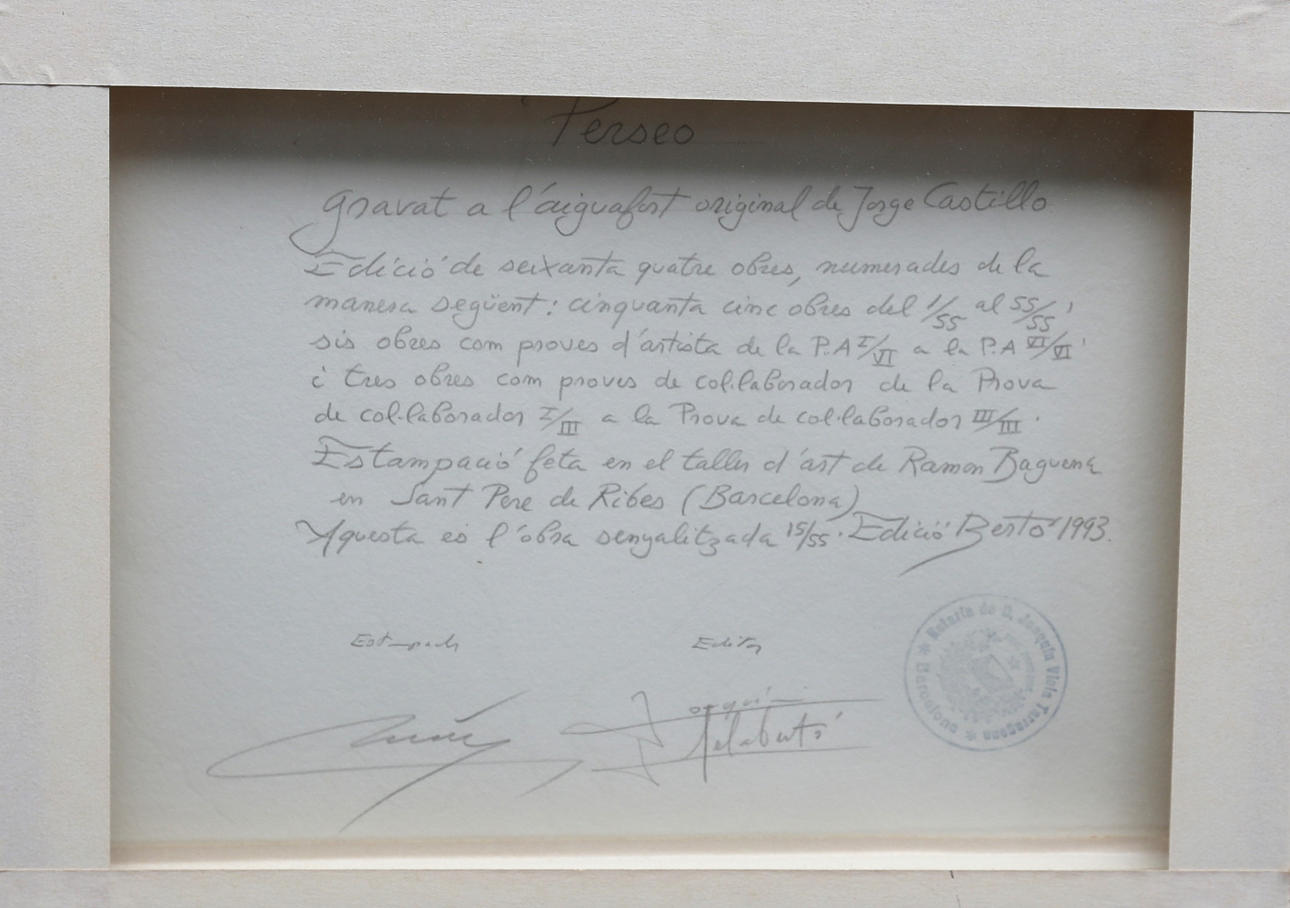 Perseo
gravat a l'aiguafort original de Jorge Castillo
Edició de seixanta quatre obres, numerades de la
manera següent: cinquanta cinc obres del 1/55 al 55/55,
sis obres com proves d'artista de la P.A I/VI a la P.A VI/VI,
i tres obres com proves de col·laborador de la Prova
de col·laborador I/III a la Prova de col·laborador III/III.
Estampació feta en el taller d'art de Ramon Baguena
en Sant Pere de Ribes (Barcelona)
Aquesta és l'obra senyalitzada 15/55. Edició Bertó 1993.
Estampador
Editor
Notaria de D. Joaquin Viola Tarragona * Barcelona *